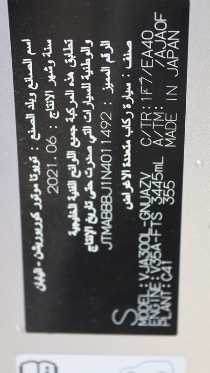 اسم الصانع وبلد الصنع : تويوتا موتور كوربوريشن - اليابان
سنة وشهر الانتاج : 2021.06
تطابق هذه المركبة جميع اللوائح الفنية الخليجية
والوطنية للسيارات التي صدرت حتى تاريخ الانتاج
الرقم المميز : JTMABBBJ1N4011492
صنف : سيارة ركاب متعددة الاغراض
MODEL: VJA300L-GNUAZV C/TR: 1F7/EA40
ENGINE: V35A-FTS 3445mL A/TM: /AJA0F
PLANT: C41 355 MADE IN JAPAN
S